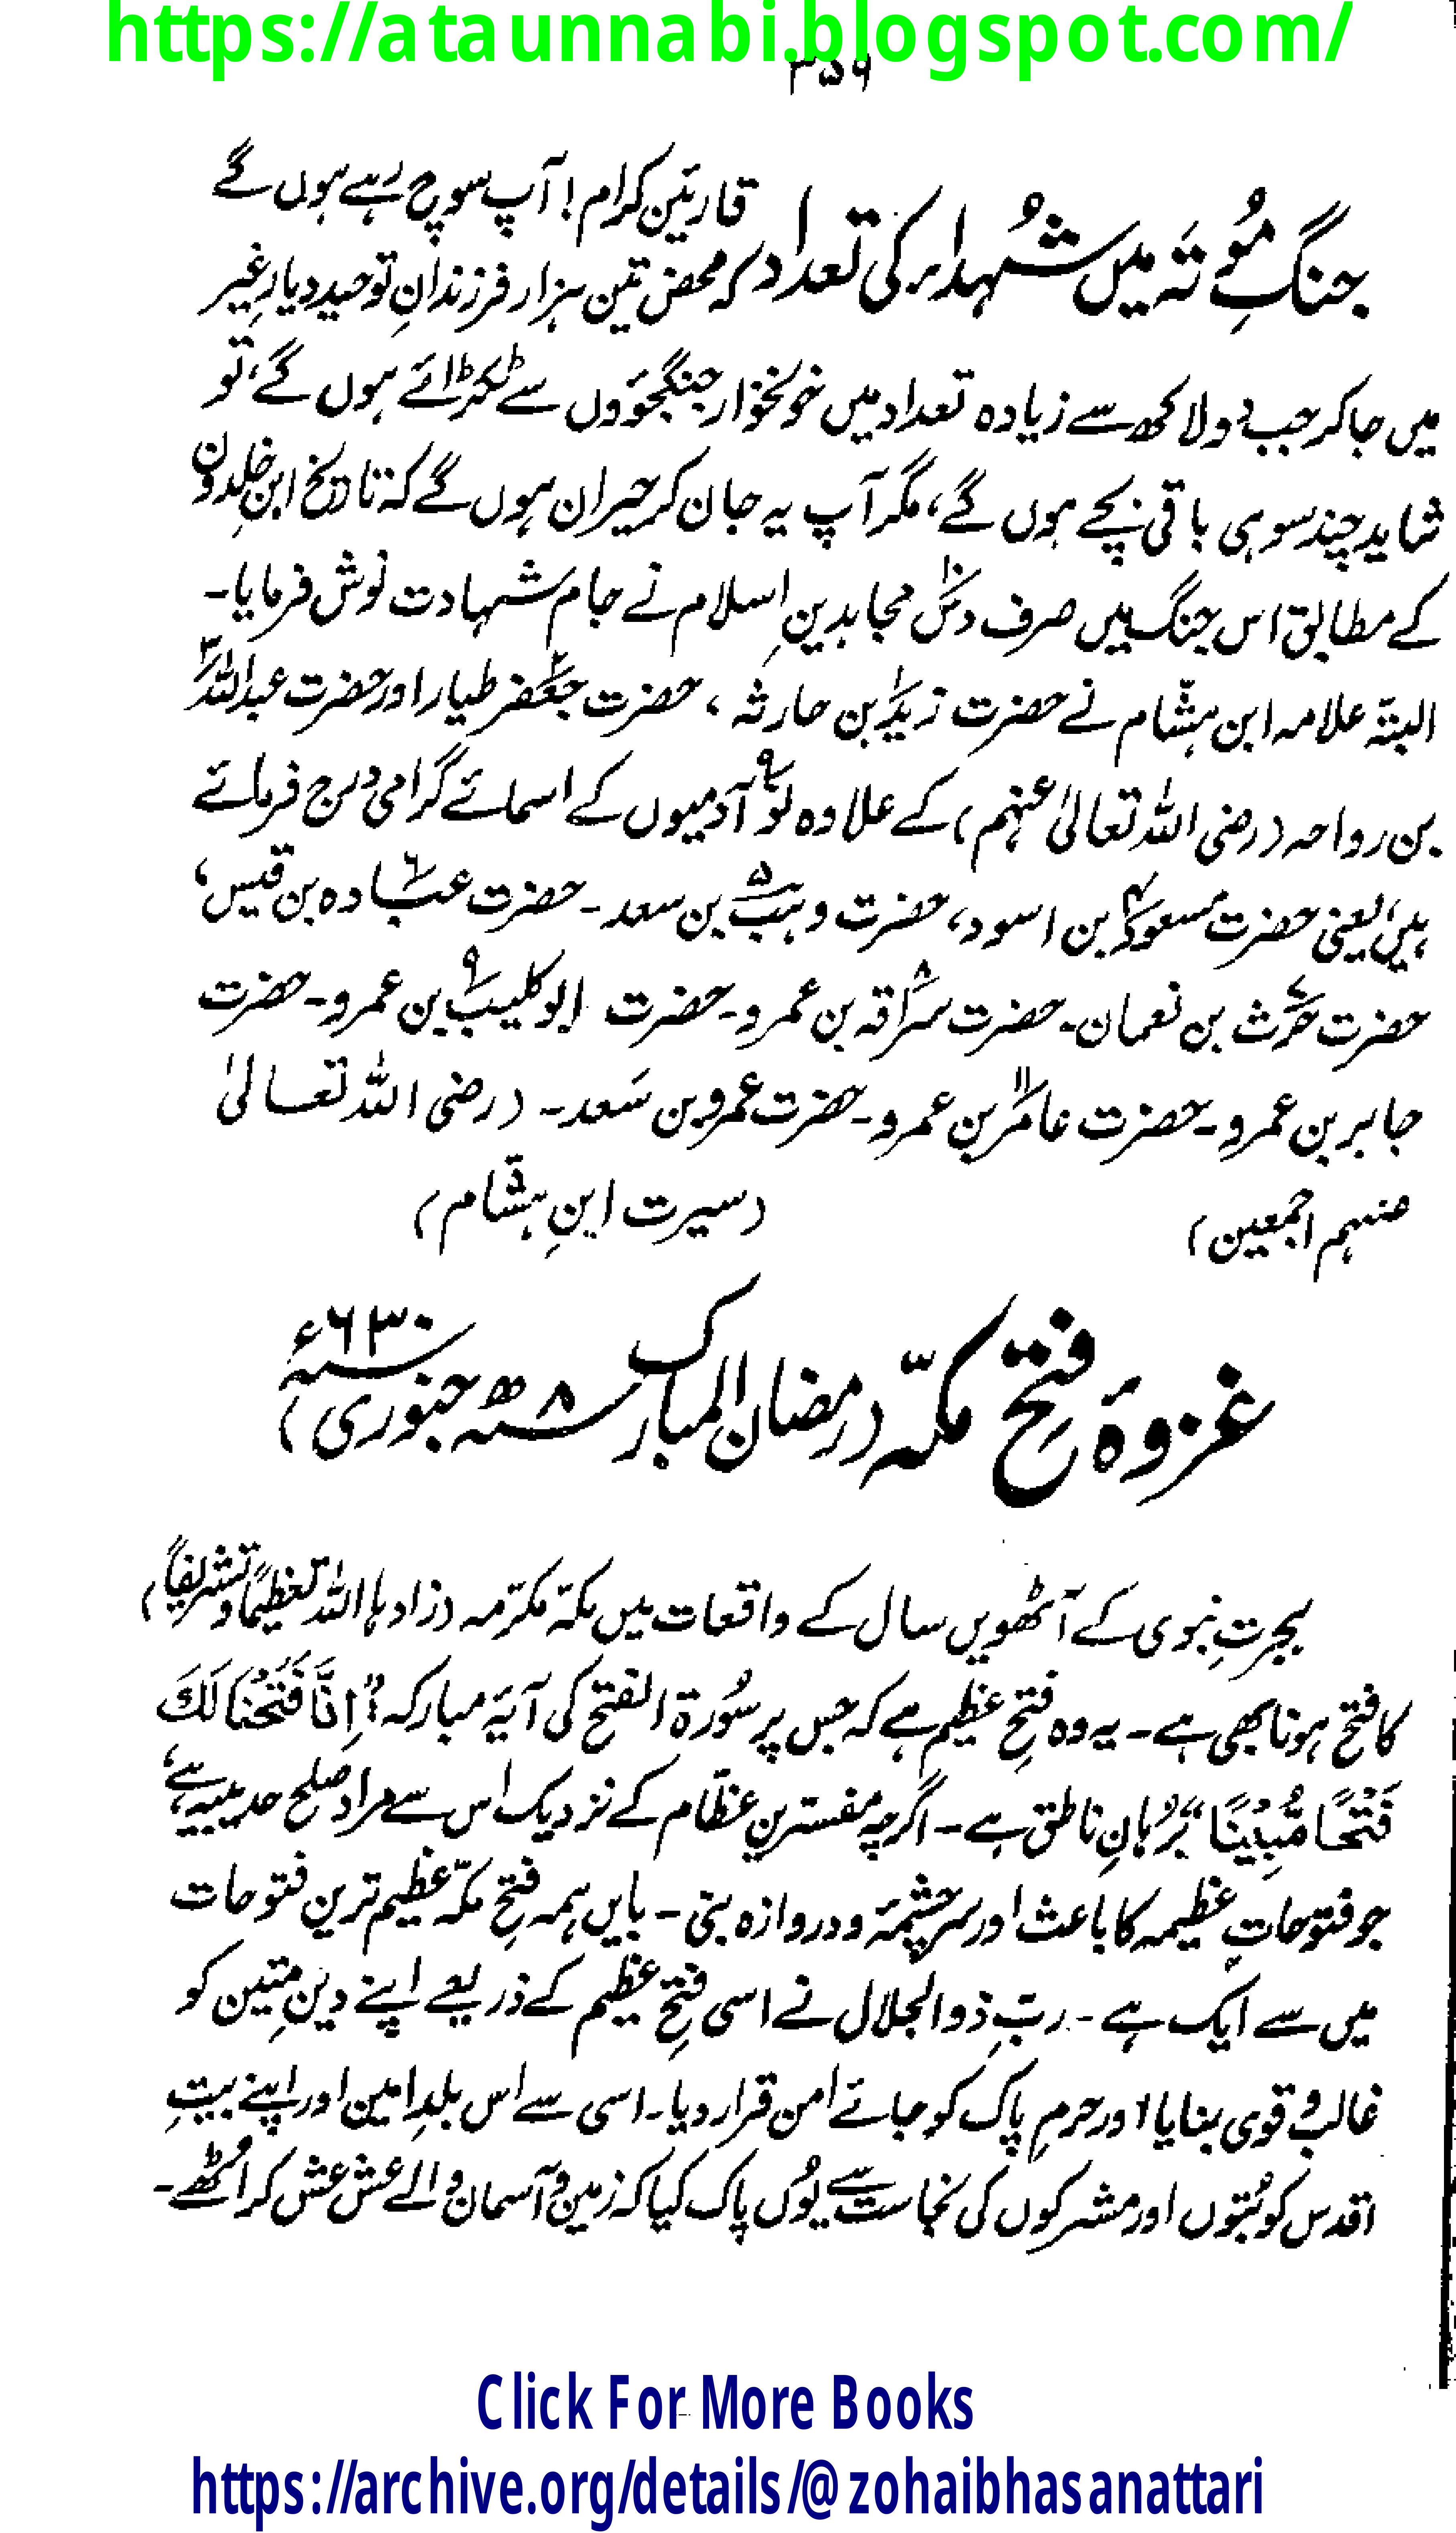 https://ataunnabi.blogspot.com/
۳۵۶
جنگِ مُوتَہ میں شُہداء کی تعداد
قارئین کرام! آپ سوچ رہے ہوں گے
کہ محض تین ہزار فرزندانِ توحید دیارِ غیر
میں جاکر جب دو لاکھ سے زیادہ تعداد میں خونخوار جنگجوؤں سے ٹکرائے ہوں گے، تو
شاید چند سو ہی باقی بچے ہوں گے، مگر آپ یہ جان کر حیران ہوں گے کہ تاریخ ابنِ خلدون
کے مطابق اس جنگ میں صرف دس۱۰ مجاہدینِ اسلام نے جام شہادت نوش فرمایا۔
البتہ علامہ ابن ہشّام نے حضرت زید۱ بن حارثہ ، حضرت جعفر۲ طیار اور حضرت عبداللہ۳
بن رواحہ (رضی اللہ تعالیٰ عنہم) کے علاوہ نو۹ آدمیوں کے اسمائے گرامی درج فرمائے
ہیں، یعنی حضرت مسعود۴ بن اسود، حضرت وہب۵ بن سعد۔ حضرت عباده۶ بن قیس،
حضرت حرث۷ بن نعمان۔ حضرت سراقہ۸ بن عمرو۔ حضرت ابوکلیب۹ بن عمرو۔ حضرت
جابر بن عمرو۔ حضرت عامر۱۱ بن عمرو۔ حضرت عمرو بن سَعد۔ (رضی اللہ تعالیٰ
عنہم اجمعین) (سیرت ابنِ ہشّام)
غزوۂ فتحِ مکّہ (رمضان المبارک ۸ھ جنوری ۶۳۰ء)
ہجرتِ نبوی کے آٹھویں سال کے واقعات میں مکّہ مکرّمہ (زادہا اللہ تعظیمًا و تشریفًا)
کا فتح ہونا بھی ہے۔ یہ وہ فتحِ عظیم ہے کہ جس پر سُورۃ الفتح کی آیۂ مبارکہ "اِنَّا فَتَحْنَا لَكَ
فَتْحًا مُّبِيْنًا" بُرہانِ ناطق ہے۔ اگرچہ مفسّرینِ عظّام کے نزدیک اس سے مراد صلح حدیبیہ ہے،
جو فتوحاتِ عظیمہ کا باعث اور سرچشمۂ و دروازہ بنی۔ بایں ہمہ فتحِ مکّہ عظیم ترین فتوحات
میں سے ایک ہے۔ ربِّ ذوالجلال نے اسی فتحِ عظیم کے ذریعے اپنے دینِ متین کو
غالب و قوی بنایا اور حرمِ پاک کو جائے امن قرار دیا۔ اسی سے اس بلدِ امین اور اپنے بیتِ
اقدس کو بُتوں اور مشرکوں کی نجاست سے یُوں پاک کیا کہ زمین و آسمان والے عش عش کر اُٹھے۔
Click For More Books
https://archive.org/details/@zohaibhasanattari